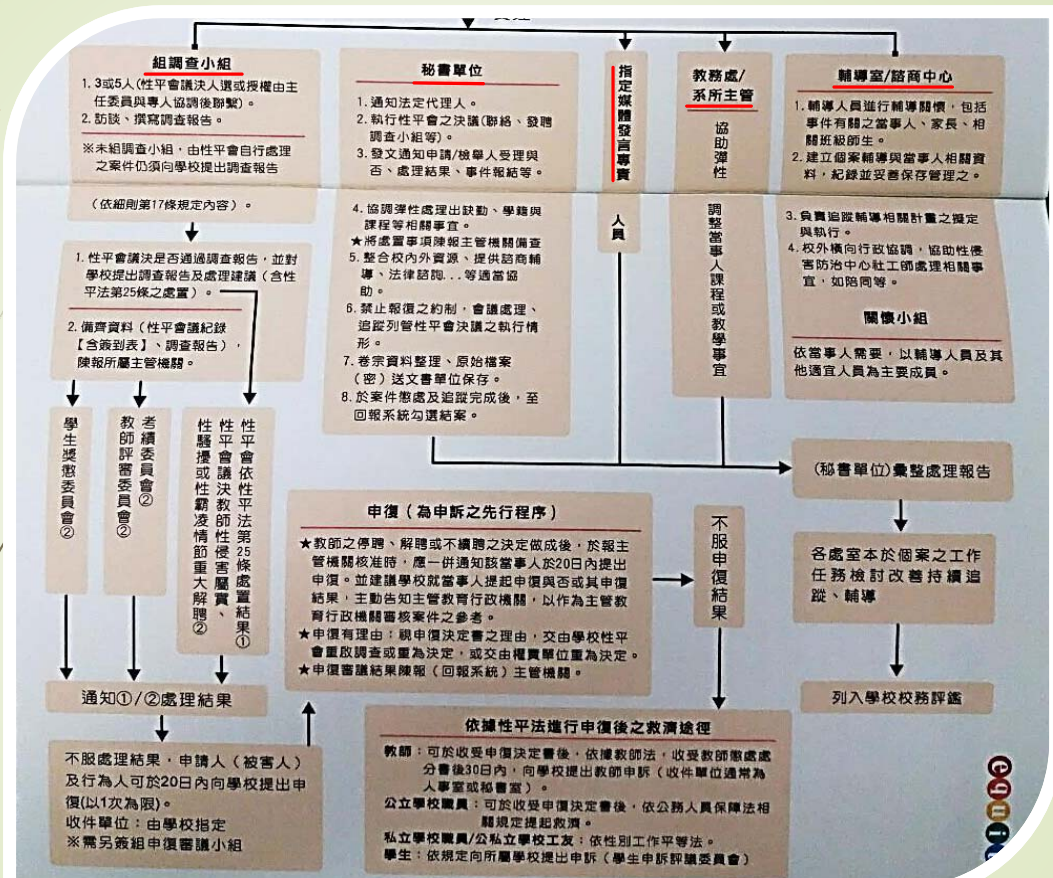 組調查小組
1. 3或5人(性平會議決人選或授權由主
任委員與專人協調後聯繫)。
2. 訪談、撰寫調查報告。
※未組調查小組，由性平會自行處理
之案件仍須向學校提出調查報告
(依細則第17條規定內容)。
1. 性平會議決是否通過調查報告，並對
學校提出調查報告及處理建議（含性
平法第25條之處置）。
2. 備齊資料（性平會議紀錄
【含簽到表】、調查報告），
陳報所屬主管機關。
學生獎懲委員會②
考績委員會②
教師評審委員會②
性平會依性平法第25條處置結果①
性平會議決教師性侵害屬實、
性騷擾或性霸凌情節重大解聘②
通知①/②處理結果
不服處理結果，申請人（被害人）
及行為人可於20日內向學校提出申
復(以1次為限)。
收件單位：由學校指定
※需另簽組申復審議小組
秘書單位
1. 通知法定代理人。
2. 執行性平會之決議(聯絡、發聘
調查小組等)。
3. 發文通知申請/檢舉人受理與
否、處理結果、事件報結等。
4. 協調彈性處理出缺勤、學籍與
課程等相關事宜。
★將處置事項陳報主管機關備查
5. 整合校內外資源、提供諮商輔
導、法律諮詢...等適當協
助。
6. 禁止報復之約制，會議處理、
追蹤列管性平會決議之執行情
形。
7. 卷宗資料整理、原始檔案
（密）送文書單位保存。
8. 於案件懲處及追蹤完成後，至
回報系統勾選結案。
指定媒體發言專責
人員
教務處/
系所主管
協助彈性
調整當事人課程或教學事宜
輔導室/諮商中心
1. 輔導人員進行輔導關懷，包括
事件有關之當事人、家長、相
關班級師生。
2. 建立個案輔導與當事人相關資
料，紀錄並妥善保存管理之。
3. 負責追蹤輔導相關計畫之擬定
與執行。
4. 校外橫向行政協調，協助性侵
害防治中心社工師處理相關事
宜，如陪同等。
關懷小組
依當事人需要，以輔導人員及其
他適宜人員為主要成員。
(秘書單位)彙整處理報告
各處室本於個案之工作
任務檢討改善持續追
蹤、輔導
列入學校校務評鑑
申復（為申訴之先行程序）
★教師之停聘、解聘或不續聘之決定做成後，於報主
管機關核准時，應一併通知該當事人於20日內提出
申復。並建議學校就當事人提起申復與否或其申復
結果，主動告知主管教育行政機關，以作為主管教
育行政機關審核案件之參考。
★申復有理由：視申復決定書之理由，交由學校性平
會重啟調查或重為決定，或交由權責單位重為決定。
★申復審議結果陳報（回報系統）主管機關。
不服申復結果
依據性平法進行申復後之救濟途徑
教師：可於收受申復決定書後，依據教師法，收受教師懲處處
分書後30日內，向學校提出教師申訴（收件單位通常為
人事室或秘書室）。
公立學校職員：可於收受申復決定書後，依公務人員保障法相
關規定提起救濟。
私立學校職員/公私立學校工友：依性別工作平等法。
學生：依規定向所屬學校提出申訴（學生申訴評議委員會）